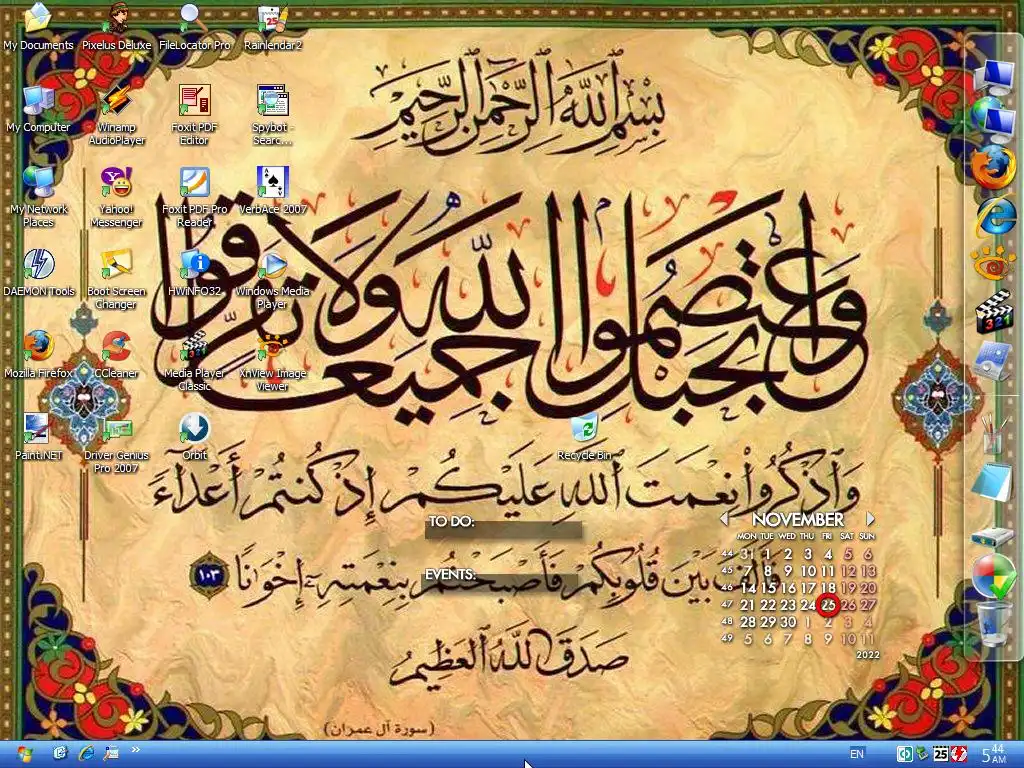 My Documents
Pixelus Deluxe
FileLocator Pro
Rainlendar2
My Computer
Winamp
AudioPlayer
Foxit PDF
Editor
Spybot -
Searc...
My Network
Places
Yahoo!
Messenger
Foxit PDF Pro
Reader
VerbAce 2007
DAEMON Tools
Boot Screen
Changer
HWiNFO32
Windows Media
Player
Mozilla Firefox
CCleaner
Media Player
Classic
XnView Image
Viewer
Paint.NET
Driver Genius
Pro 2007
Orbit
Recycle Bin
بسم الله الرحمن الرحيم
واعتصموا بحبل الله جميعا ولا تفرقوا
وَاذْكُرُوا نِعْمَتَ اللهِ عَلَيْكُمْ إِذْ كُنتُمْ أَعْدَاءً
فَأَلَّفَ بَيْنَ قُلُوبِكُمْ فَأَصْبَحْتُم بِنِعْمَتِهِ إِخْوَانًا ١٠٣
صدق الله العظيم
(سورة آل عمران)
TO DO:
EVENTS:
NOVEMBER
MON TUE WED THU FRI SAT SUN
44 31 1 2 3 4 5 6
45 7 8 9 10 11 12 13
46 14 15 16 17 18 19 20
47 21 22 23 24 25 26 27
48 28 29 30 1 2 3 4
49 5 6 7 8 9 10 11
2022
321
EN
25
5 44 AM